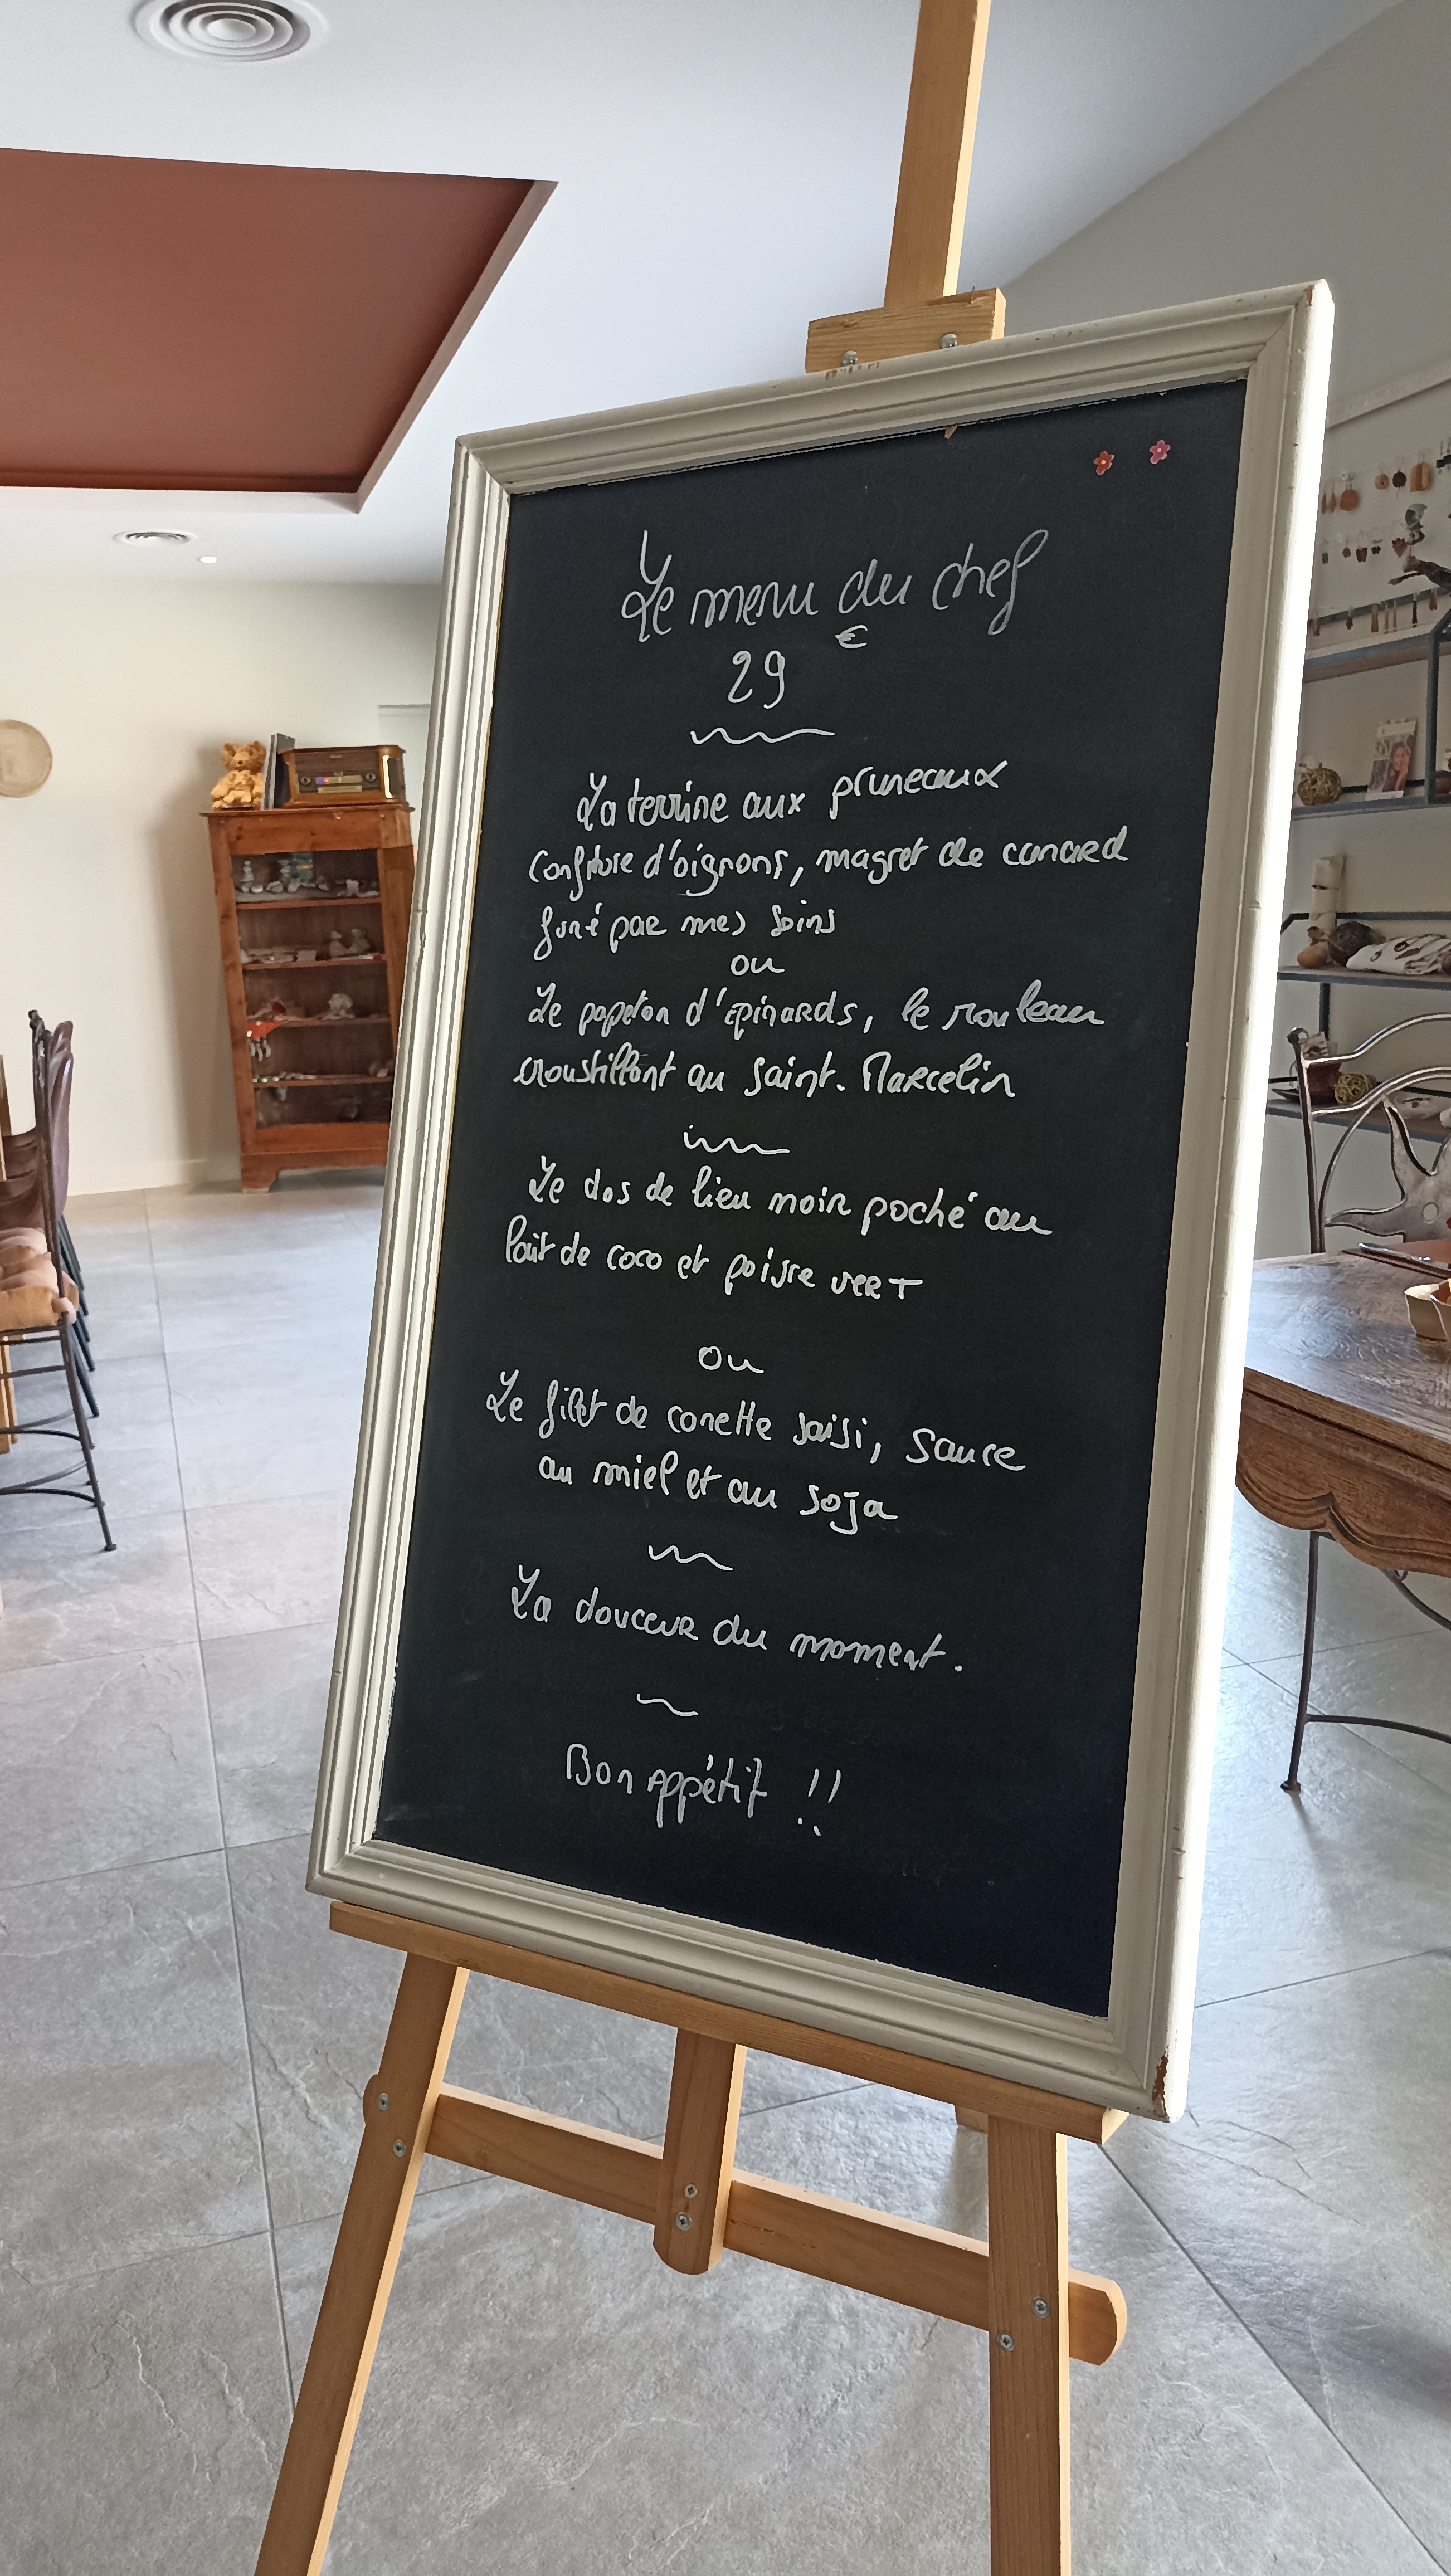 Le menu du chef
29 €
La terrine aux pruneaux
Confiture d'oignons, magret de canard
fumé par mes soins
ou
Le papeton d'épinards, le rouleau
croustillant au Saint. Marcelin
Le dos de lieu noir poché au
lait de coco et poivre vert
ou
Le filet de canette saisi, sauce
au miel et au soja
La douceur du moment.
Bon appétit !!